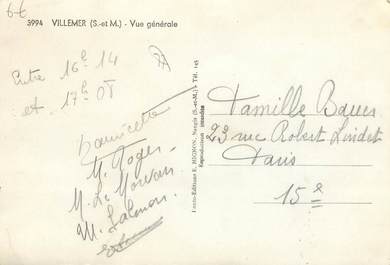 6-E
3994 VILLEMER (S.-et M.) - Vue générale
Entre 16h 14
et 17h 08
M. Roger
M. Le Morvan
M. Salmon
Photo-Editions E. MIGNON, Nangis (S.-et-M.) - Tél. 145
Reproduction interdite
Famille Baues
23 rue Robert Lindet
Paris
15e